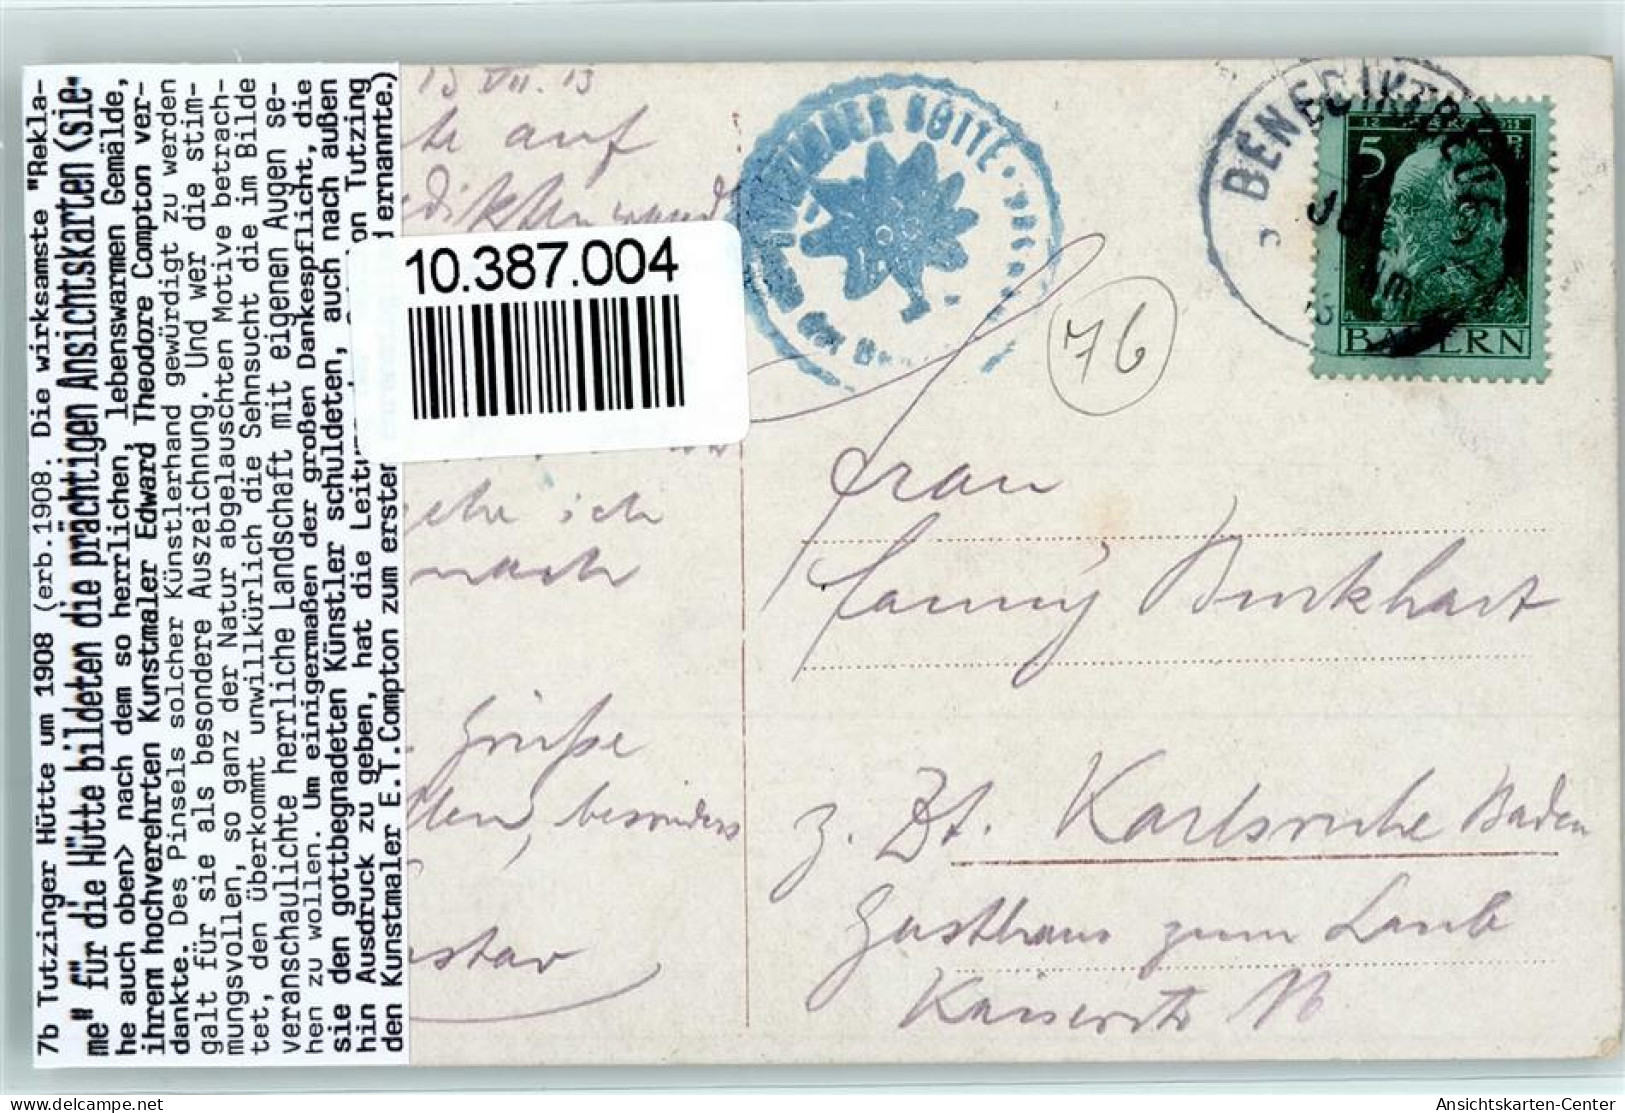 7b Tutzinger Hütte um 1908 (erb.1908. Die wirksamste "Rekla-
me" für die Hütte bildeten die prächtigen Ansichtskarten (sie-
he auch oben> nach dem so herrlichen, lebenswarmen Gemälde,
ihrem hochverehrten Kunstmaler Edward Theodore Compton ver-
dankte. Des Pinsels solcher Künstlerhand gewürdigt zu werden
galt für sie als besondere Auszeichnung. Und wer die stim-
mungsvollen, so ganz der Natur abgelauschten Motive betrach-
tet, den überkommt unwillkürlich die Sehnsucht die im Bilde
veranschaulichte herrliche Landschaft mit eigenen Augen se-
hen zu wollen. Um einigermaßen der großen Dankespflicht, die
sie den gottbegnadeten Künstler schuldeten, auch nach außen
hin Ausdruck zu geben, hat die Leitu on Tutzing
den Kunstmaler E.T.Compton zum erster ernannte.)
13 VII. 13
auf
10.387.004
ich
nach
Grüße
besonders
HÜTTE
der
76
BENEDIKTBEUE
JUL
5
12 1911
BAYERN
Frau
Fanny Burkhart
z. Zt. Karlsruhe Baden
Gasthaus zum Laub
Kaiserstr
delcampe.net
Ansichtskarten-Center